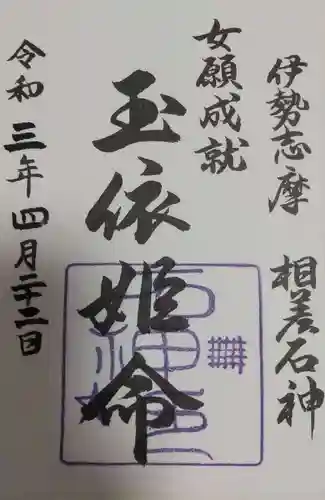 伊勢志摩 相差石神
女願成就
玉依姫命
令和三年四月二十二日